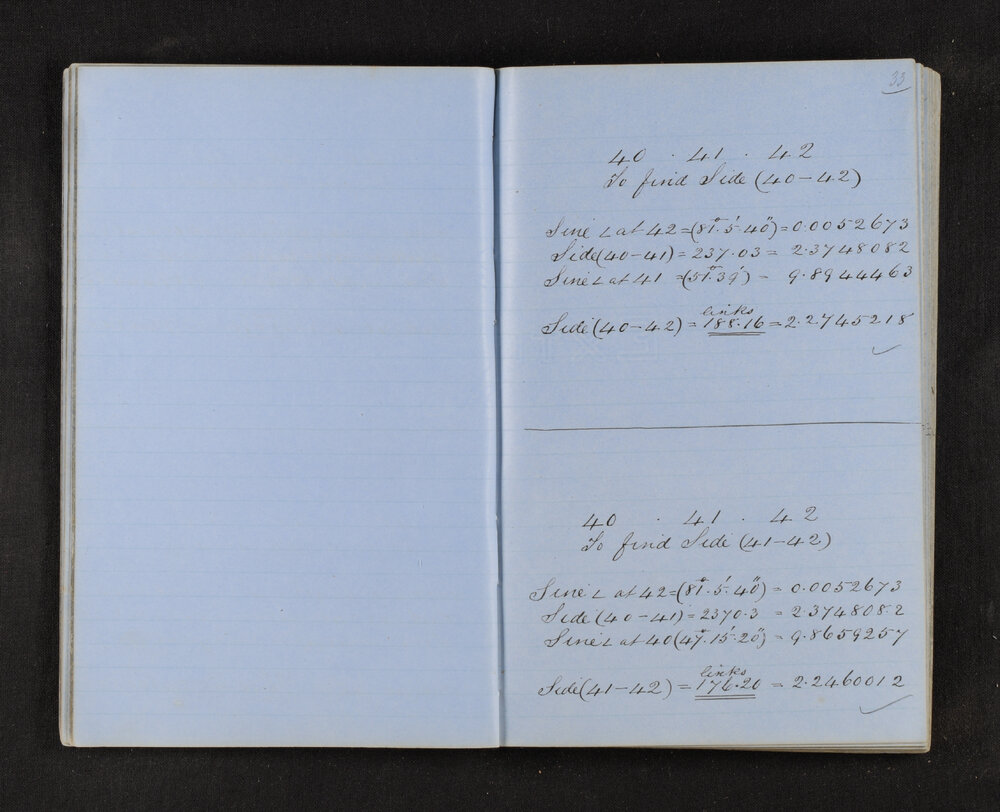 33
40 . 41 . 42
To find Side (40-42)
Sine ∠ at 42 = (81°. 5'. 40") = 0.0052673
Side (40-41) = 237.03 = 2.3748082
Sine ∠ at 41 = (51°. 39') = 9.8944463
links
Side (40-42) = 188.16 = 2.2745218
40 . 41 . 42
To find Side (41-42)
Sine ∠ at 42 = (81°. 5'. 40") = 0.0052673
Side (40-41) = 2370.3 = 2.3748082
Sine ∠ at 40 (47°. 15'. 20") = 9.8659257
links
Side (41-42) = 176.20 = 2.2460012